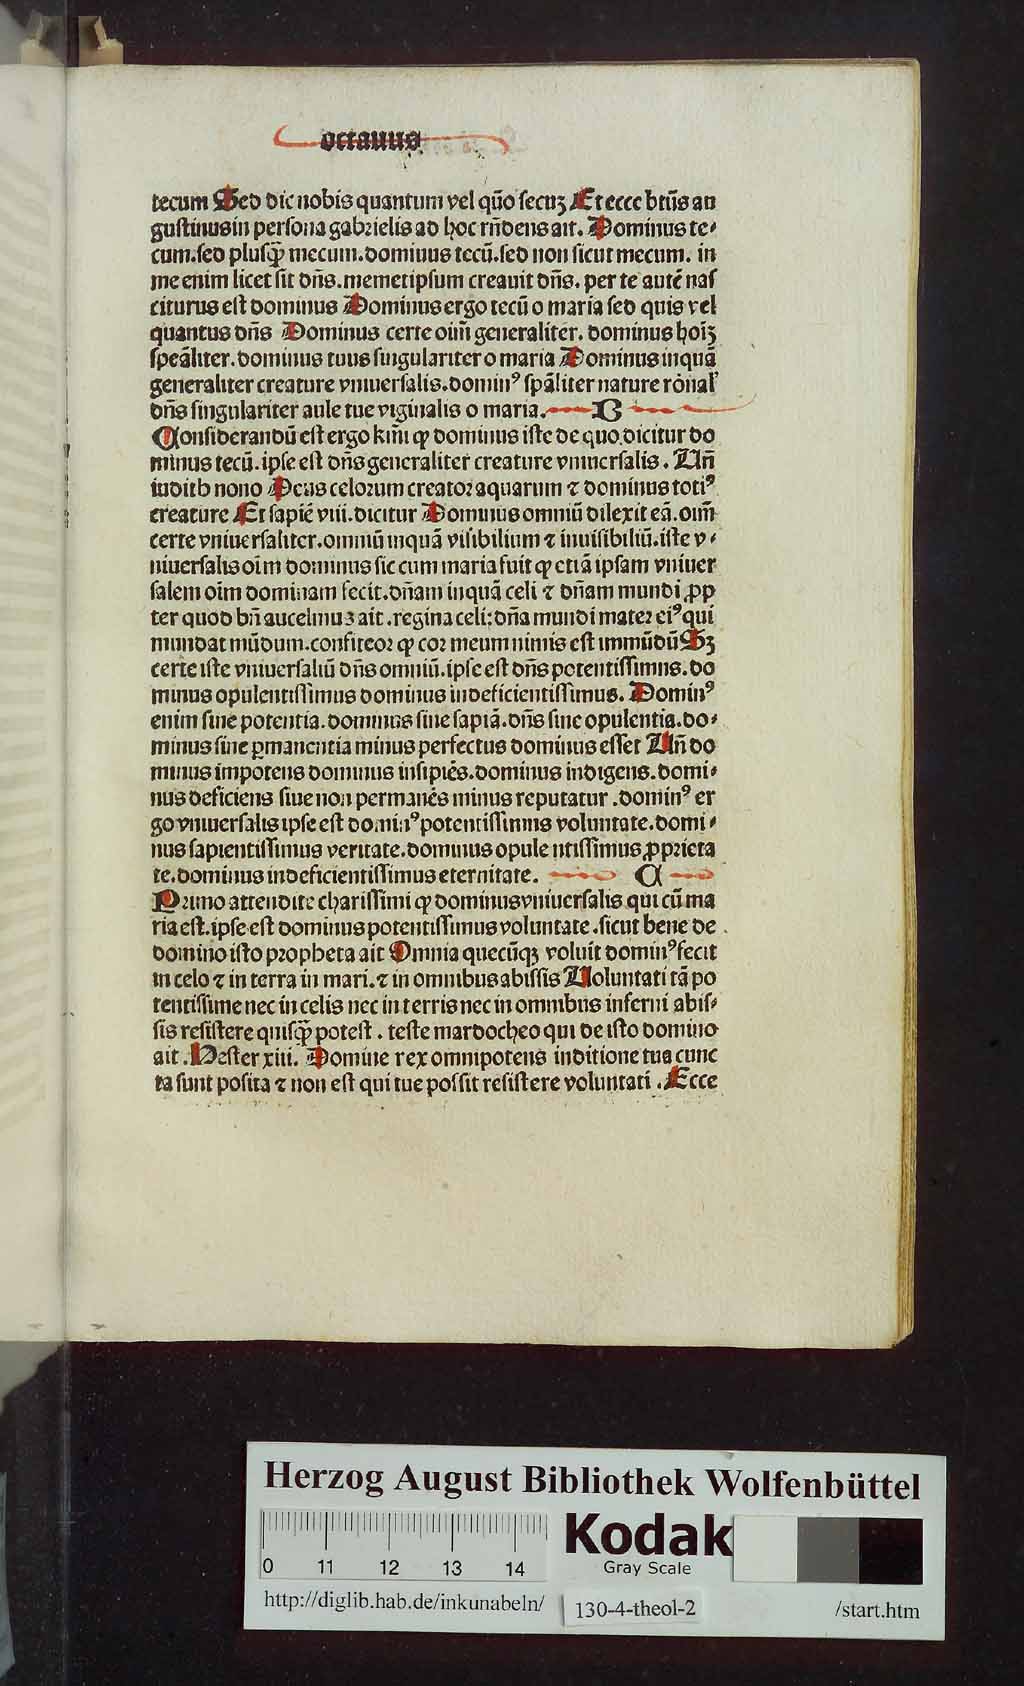 octauus
tecum Sed dic nobis quantum vel quō secuʒ Et ecce btūs au
gustinus in persona gabrielis ad hoc rn̄dens ait. Dominus te⸗
cum. sed plusqꝫ̄ mecum. dominus tecū. sed non sicut mecum. in
me enim licet sit dn̄s. memetipsum creauit dn̄s. per te autē nas
citurus est dominus Dominus ergo tecū o maria sed quis vel
quantus dn̄s Dominus certe oim̄ generaliter. dominus hoīʒ
speāliter. dominus tuus singulariter o maria Dominus inquā
generaliter creature vniuersalis. dominꝰ spāliter nature rōnal'
dn̄s singulariter aule tue viginalis o maria. B
Considerandū est ergo km̄i ꝙ dominus iste de quo dicitur do
minus tecū. ipse est dn̄s generaliter creature vniuersalis. Un̄
iudith nono Deus celorum creator aquarum ⁊ dominus totiꝰ
creature Et sapiē viii. dicitur Dominus omniū dilexit eā. oim̄
certe vniuersaliter. omniū inquā visibilium ⁊ inuisibiliū. iste v⸗
niuersalis oīm dominus sic cum maria fuit ꝙ etiā ipsam vniuer
salem oīm dominam fecit. dn̄am inquā celi ⁊ dn̄am mundi ꝓp
ter quod bn̄ ancelmuʒ ait. regina celi: dn̄a mundi mater eiꝰ qui
mundat mūdum. confiteor ꝙ cor meum nimis est immūdū Sʒ
certe iste vniuersaliū dn̄s omniū. ipse est dn̄s potentissimus. do
minus opulentissimus dominus indeficientissimus. Dominꝰ
enim sine potentia. dominus sine sapiā. dn̄s sine opulentia. do⸗
minus sine ꝑmanentia minus perfectus dominus esset Un̄ do
minus impotens dominus insipiēs. dominus indigens. domi⸗
nus deficiens siue non permanēs minus reputatur. dominꝰ er
go vniuersalis ipse est dominꝰ potentissimus voluntate. domi⸗
nus sapientissimus veritate. dominus opulentissimus ꝓprieta
te. dominus indeficientissimus eternitate. C
Primo attendite charissimi ꝙ dominus vniuersalis qui cū ma
ria est. ipse est dominus potentissimus voluntate. sicut bene de
domino isto propheta ait Omnia quecūqꝫ voluit dominꝰ fecit
in celo ⁊ in terra in mari. ⁊ in omnibus abissis Uoluntati tā po
tentissime nec in celis nec in terris nec in omnibus inferni abis⸗
sis resistere quisqꝫ̄ potest. teste mardocheo qui de isto domino
ait. Hester xiii. Domine rex omnipotens in ditione tua cunc
ta sunt posita ⁊ non est qui tue possit resistere voluntati. Ecce
Herzog August Bibliothek Wolfenbüttel
0 11 12 13 14
Kodak
Gray Scale
http://diglib.hab.de/inkunabeln/ 130-4-theol-2 /start.htm